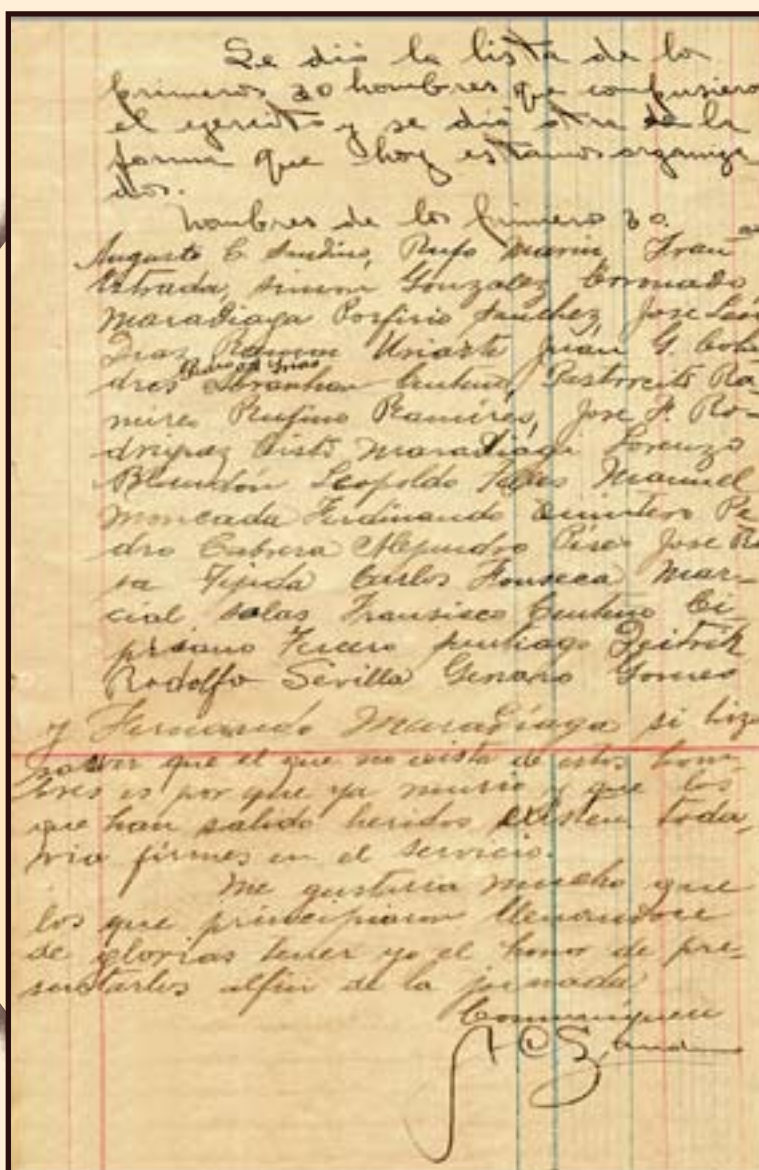 Se dió la lista de los
primeros 30 hombres que compusiero
el ejercito y se dió otra de la
forma que hoy estamos organiza
dos.
Nombres de los primero 30.
Augusto C. Sandino, Rufo Marin, Fran
Estrada, Simon Gonzalez Coronado
Maradiaga Porfirio Sanchez, Jose León
Diaz Ramon Uriarte Juan G. Colin
dres Abranhan Centeno, Pastorcito Ra-
mires Rufino Ramires, Jose P. Ro-
driguez Cisto Maradiaga Lorenzo
Blandón Leopoldo Manuel
Moncada Ferdinando Quintero Pe
dro Cabrera Alejandro Peres Jose Ro
sa Tijida Carlos Fonseca Mar-
cial Salas Fransisco Centeno Ci-
priano Tercero Santiago Deitrik
Rodolfo Sevilla Genaro Gomes
y Fernando Maradiaga si hiz
saver que el que no exista de estos hom-
bres es por que ya murio y que los
que han salido heridos existen toda,
via firmes en el servicio.
Me gustaria mucho que
los que principiaron llenandose
de glorias tener yo el honor de pre-
sentarlos alfin de la jornada
Comuniquese
A C Sandino